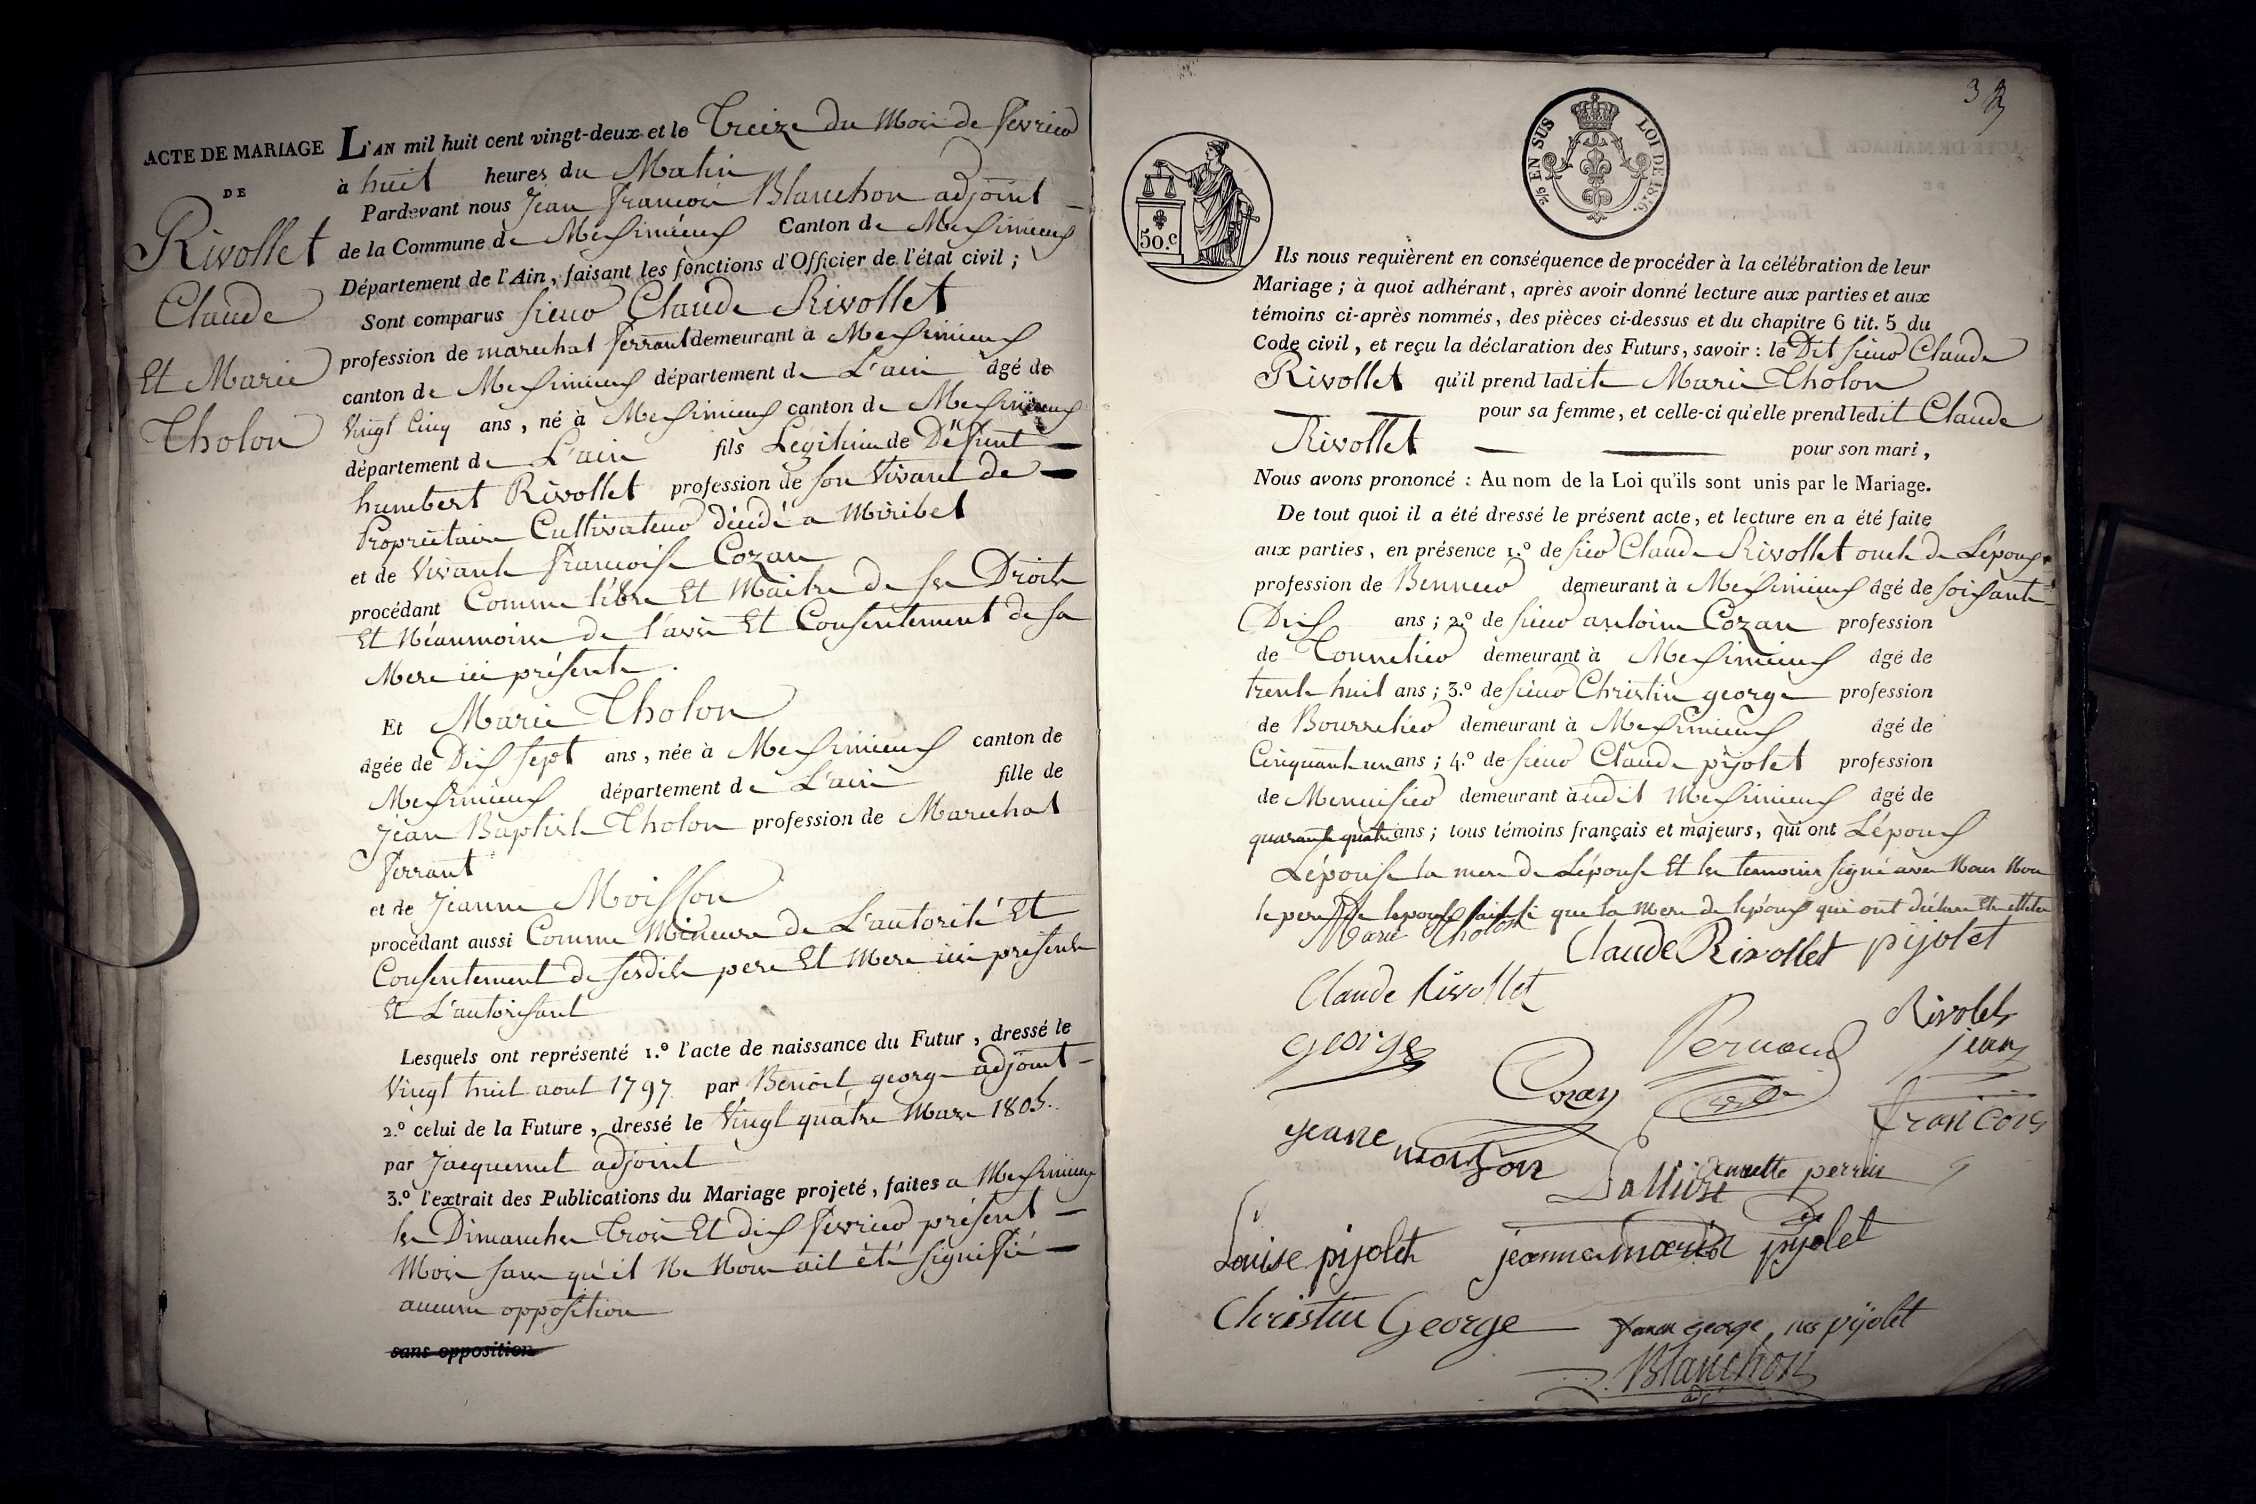 ACTE DE MARIAGE
DE
Rivollet
Claude
Et Marie
Tholon
L'AN mil huit cent vingt-deux et le Treize du Mois de fevrier
à huit heures du Matin
Pardevant nous Jean François Blanchon adjoint
de la Commune de Meximieux Canton de Meximieux
Département de l'Ain, faisant les fonctions d'Officier de l'état civil;
Sont comparus sieur Claude Rivollet
profession de marechal ferrant demeurant à Meximieux
canton de Meximieux département de L'ain âgé de
Vingt Cinq ans, né à Meximieux canton de Meximieux
département de L'ain fils Legitime de Défunt
humbert Rivollet profession de son Vivant de
Propriétaire Cultivateur décédé a Miribel
et de Vivante françoise Cozan
procédant Comme libre Et Maitre de ses Droits
Et Néanmoins de l'avis Et Consentement de sa
Mere ici présente.
Et Marie Tholon
âgée de Dix sept ans, née à Meximieux canton de
Meximieux département de L'ain fille de
Jean Baptiste Tholon profession de Marechal
ferrant
et de Jeanne Moisson
procédant aussi Comme Mineure de L'autorité Et
Consentement de sesdits pere Et Mere ici présents
Et L'autorisant
Lesquels ont représenté 1.º l'acte de naissance du Futur, dressé le
Vingt huit aout 1797 par Benoit george adjoint
2.º celui de la Future, dressé le Vingt quatre Mars 1805.
par Jacquemet adjoint
3.º l'extrait des Publications du Mariage projeté, faites a Meximieux
les Dimanches Trois Et dix fevrier présent
Mois sans qu'il Ne Nous ait été signifié
aucune opposition
sans opposition
50.c
2/5 EN SUS LOI DE 1816.
Ils nous requièrent en conséquence de procéder à la célébration de leur
Mariage; à quoi adhérant, après avoir donné lecture aux parties et aux
témoins ci-après nommés, des pièces ci-dessus et du chapitre 6 tit. 5 du
Code civil, et reçu la déclaration des Futurs, savoir: le Dit sieur Claude
Rivollet qu'il prend ladite Marie Tholon
pour sa femme, et celle-ci qu'elle prend ledit Claude
Rivollet pour son mari,
Nous avons prononcé: Au nom de la Loi qu'ils sont unis par le Mariage.
De tout quoi il a été dressé le présent acte, et lecture en a été faite
aux parties, en présence 1.º de sieur Claude Rivollet oncle de L'époux
profession de demeurant à Meximieux âgé de soixante
Dix ans; 2.º de sieur antoine Cozan profession
de Tonnelier demeurant à Meximieux âgé de
trente huit ans; 3.º de sieur Christin george profession
de Bourrelier demeurant à Meximieux âgé de
Cinquante un ans; 4.º de sieur Claude pijolet profession
de Menuisier demeurant à udit Meximieux âgé de
quarante quatre ans; tous témoins français et majeurs, qui ont L'époux
L'épouse la mere de L'épouse Et les temoins signé avec Nous Non
le pere De lepouse que la Mere de lépoux qui ont déclaré
Marie Tholon
Claude Rivollet pijolet
Claude Rivollet
Rivolet
jean
george
Pernoud
Cozan
françois
jeane moisson
annette perrin
Louise pijolet jeanne maria pijolet
Christin George
george née pijolet
Blanchon
adj